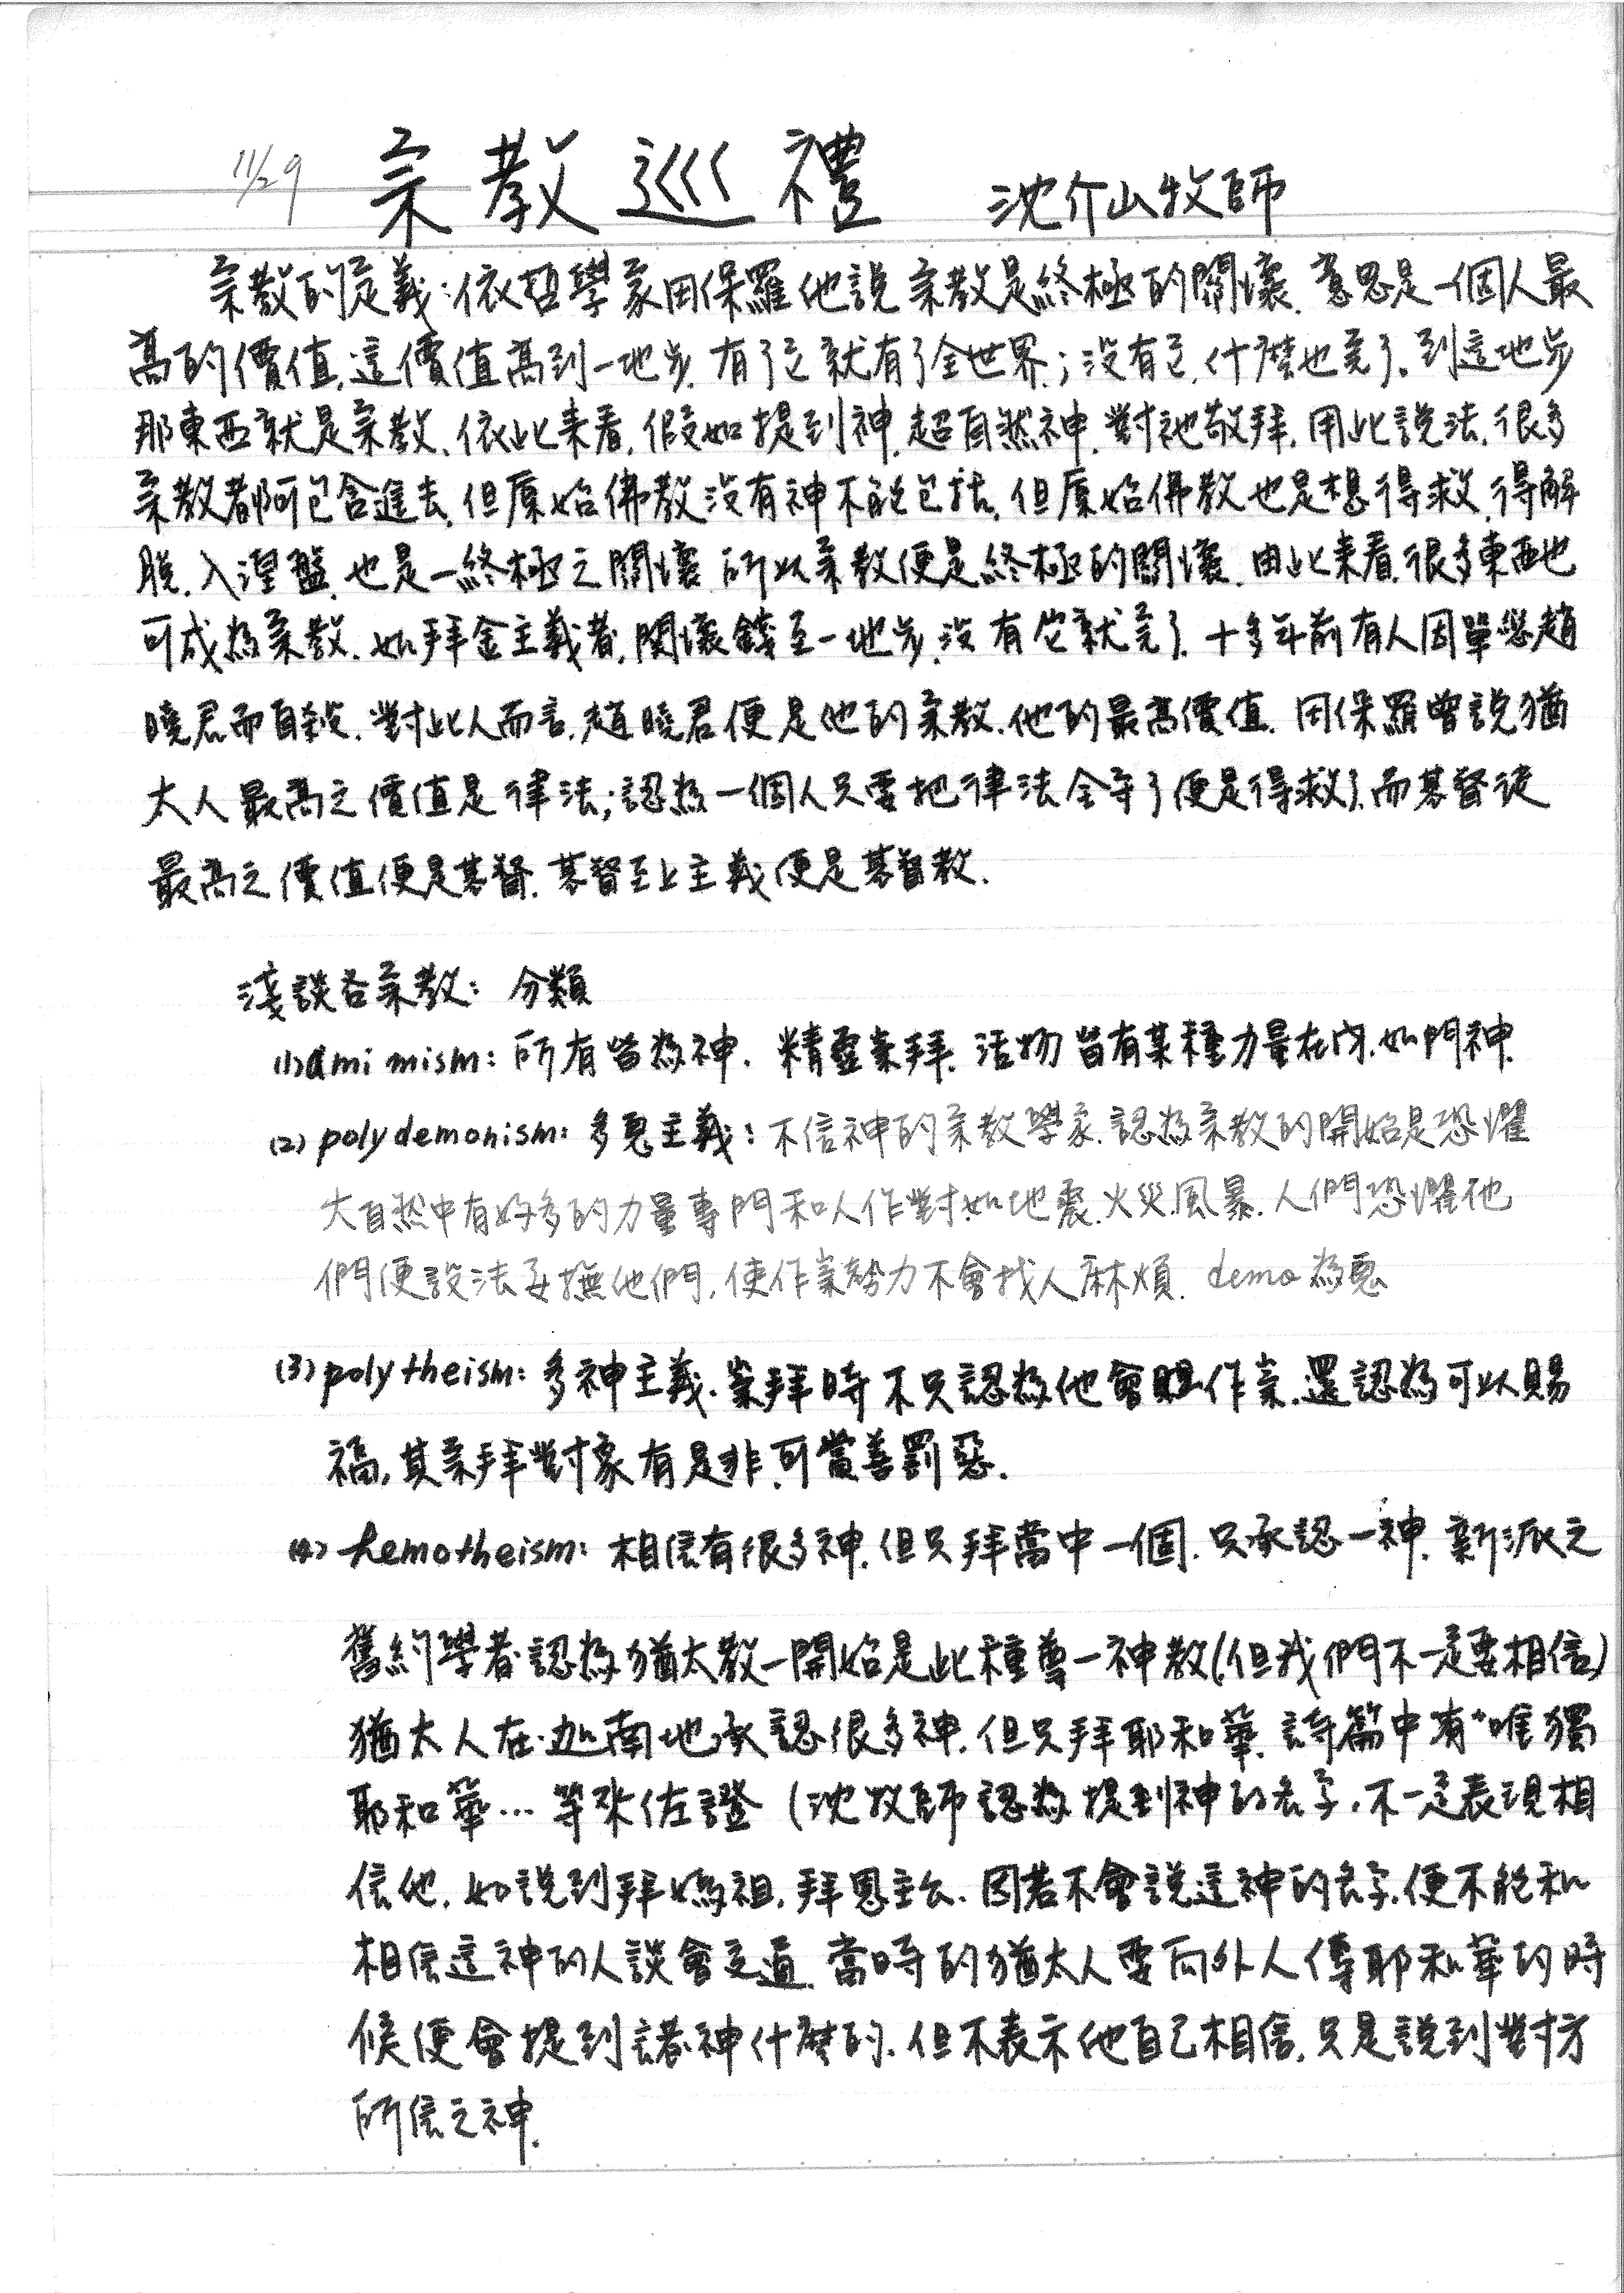 11/29 宗教巡禮 沈介山牧師
宗教的定義:依哲學家田保羅他說宗教是終極的關懷.意思是一個人最
高的價值,這價值高到一地步.有了它就有了全世界;沒有它,什麼也完了。到這地步
那東西就是宗教.依此來看,假如提到神.超自然神.對祂敬拜.用此說法.很多
宗教都可包含進去,但原始佛教沒有神不能包括,但原始佛教也是想得救.得解
脫.入涅盤.也是一終極之關懷 所以宗教便是終極的關懷.由此來看.很多東西也
可成為宗教.如拜金主義者,關懷錢至一地步.沒有它就完了.十多年前有人因單戀趙
曉君而自殺.對此人而言,趙曉君便是他的宗教.他的最高價值.田保羅曾說猶
太人最高之價值是律法;認為一個人只要把律法全守了便是得救了.而基督徒
最高之價值便是基督.基督至上主義便是基督教.
淺談各宗教:分類
(1)animism:所有皆為神.精靈崇拜.活物皆有某種力量在內.如門神.
(2)polydemonism:多惡主義:不信神的宗教學家.認為宗教的開始是恐懼
大自然中有好多的力量專門和人作對.如地震.火災.風暴.人們恐懼他
們便設法安撫他們.使作祟勢力不會找人麻煩.demo為惡
(3)polytheism:多神主義.崇拜時不只認為他會作祟.還認為可以賜
福,其崇拜對象有是非.可賞善罰惡.
(4)henotheism:相信有很多神.但只拜當中一個.只承認一神.新派之
舊約學者認為猶太教一開始是此種尊一神教(但我們不一定要相信)
猶太人在迦南地承認很多神.但只拜耶和華.詩篇中有"唯獨
耶和華…等來佐證(沈牧師認為提到神的名字.不一定表現相
信他.如說到拜媽祖.拜恩主公.因若不會說這神的名字.便不能和
相信這神的人談會交道.當時的猶太人要向外人傳耶和華的時
候便會提到諸神什麼的.但不表示他自己相信.只是說到對方
所信之神.